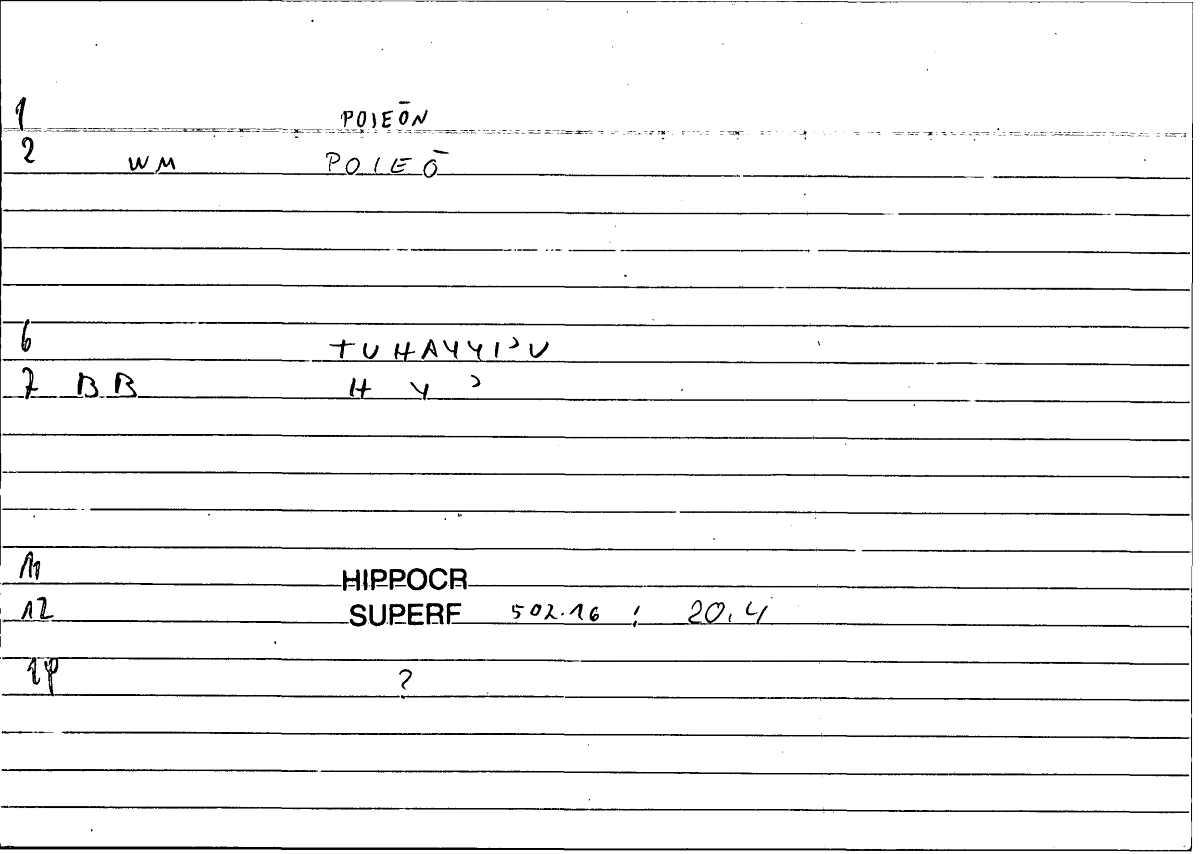 1 POIEŌN
2 WM POIEŌ
6 TUHAYYIʾU
7 BB H Y ʾ
11 HIPPOCR
12 SUPERF 502.16 ; 20.4
14 ?